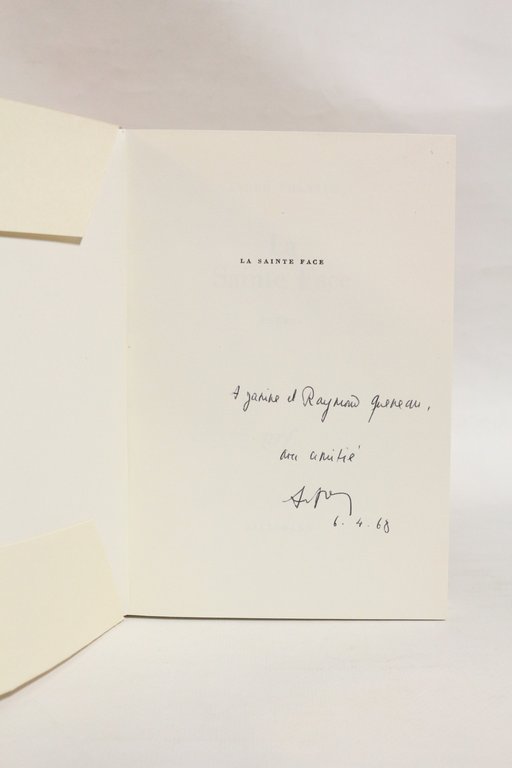 LA SAINTE FACE
A janine et Raymond Queneau,
mon amitié
6. 4. 68